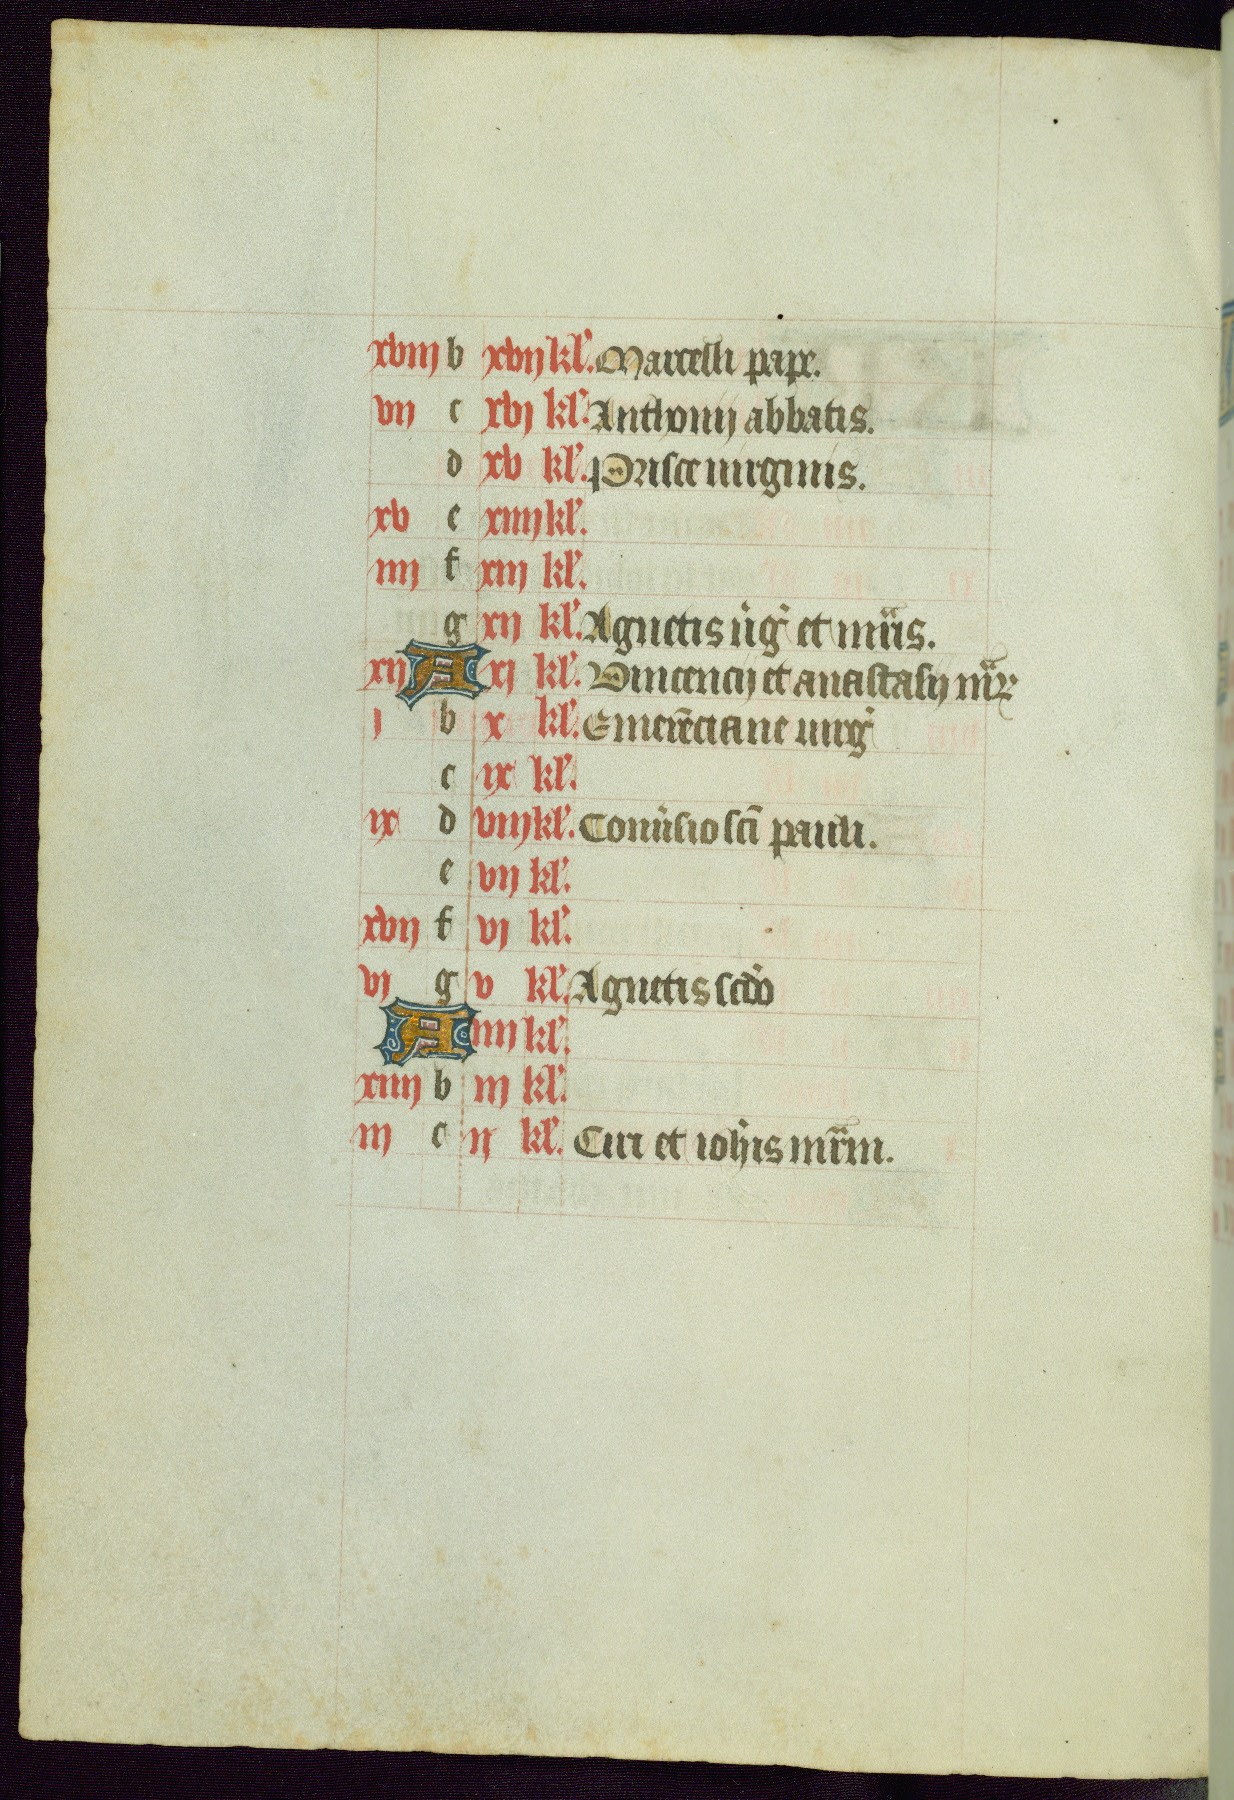 xviij b xvij kl'. Marcelli pape.
vij c xvj kl'. Anthonij abbatis.
d xv kl'. Prisce uirginis.
xv e xiiij kl'.
iiij f xiij kl'.
g xij kl'. Agnetis u̾g̾ et mr̄is.
xij A xj kl'. Vincencij et anastasij mr̄
j b x kl'. Emerēciane uirg̾
c ix kl'.
ix d viij kl'. Conu̾sio sci̅ pauli.
e vij kl'.
xvij f vj kl'.
vj g v kl'. Agnetis scd̾o
A iiij kl'.
xiiij b iij kl'.
iij c ij kl'. Ciri et ioh̾is mr̄m.